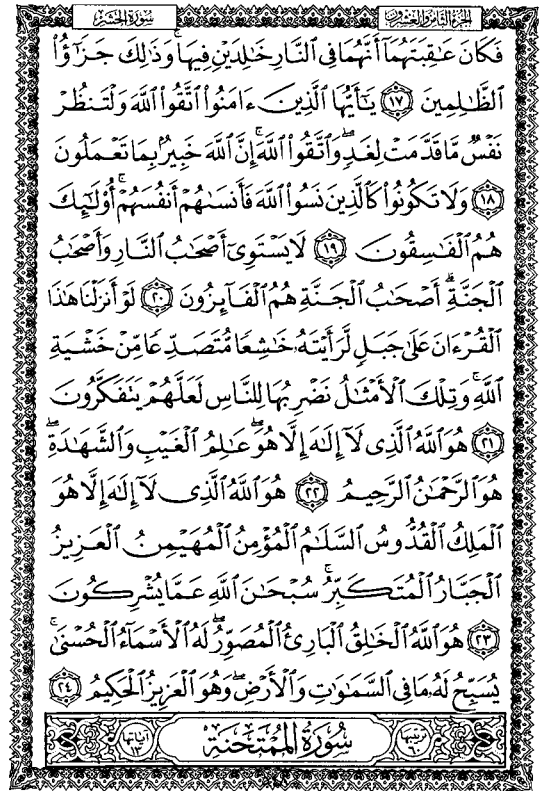 سُورَةُ الحَشْرِ
الجزءُ الثَّامِنُ وَالعِشْرُون
فَكَانَ عَٰقِبَتَهُمَآ أَنَّهُمَا فِى ٱلنَّارِ خَٰلِدَيْنِ فِيهَا ۚ وَذَٰلِكَ جَزَٰٓؤُا۟
ٱلظَّٰلِمِينَ ١٧ يَٰٓأَيُّهَا ٱلَّذِينَ ءَامَنُوا۟ ٱتَّقُوا۟ ٱللَّهَ وَلْتَنظُرْ
نَفْسٌ مَّا قَدَّمَتْ لِغَدٍ ۖ وَٱتَّقُوا۟ ٱللَّهَ ۚ إِنَّ ٱللَّهَ خَبِيرٌۢ بِمَا تَعْمَلُونَ
١٨ وَلَا تَكُونُوا۟ كَٱلَّذِينَ نَسُوا۟ ٱللَّهَ فَأَنسَىٰهُمْ أَنفُسَهُمْ ۚ أُو۟لَٰٓئِكَ
هُمُ ٱلْفَٰسِقُونَ ١٩ لَا يَسْتَوِىٓ أَصْحَٰبُ ٱلنَّارِ وَأَصْحَٰبُ
ٱلْجَنَّةِ ۚ أَصْحَٰبُ ٱلْجَنَّةِ هُمُ ٱلْفَآئِزُونَ ٢٠ لَوْ أَنزَلْنَا هَٰذَا
ٱلْقُرْءَانَ عَلَىٰ جَبَلٍ لَّرَأَيْتَهُۥ خَٰشِعًا مُّتَصَدِّعًا مِّنْ خَشْيَةِ
ٱللَّهِ ۚ وَتِلْكَ ٱلْأَمْثَٰلُ نَضْرِبُهَا لِلنَّاسِ لَعَلَّهُمْ يَتَفَكَّرُونَ
٢١ هُوَ ٱللَّهُ ٱلَّذِى لَآ إِلَٰهَ إِلَّا هُوَ ۖ عَٰلِمُ ٱلْغَيْبِ وَٱلشَّهَٰدَةِ ۖ
هُوَ ٱلرَّحْمَٰنُ ٱلرَّحِيمُ ٢٢ هُوَ ٱللَّهُ ٱلَّذِى لَآ إِلَٰهَ إِلَّا هُوَ
ٱلْمَلِكُ ٱلْقُدُّوسُ ٱلسَّلَٰمُ ٱلْمُؤْمِنُ ٱلْمُهَيْمِنُ ٱلْعَزِيزُ
ٱلْجَبَّارُ ٱلْمُتَكَبِّرُ ۚ سُبْحَٰنَ ٱللَّهِ عَمَّا يُشْرِكُونَ
٢٣ هُوَ ٱللَّهُ ٱلْخَٰلِقُ ٱلْبَارِئُ ٱلْمُصَوِّرُ ۖ لَهُ ٱلْأَسْمَآءُ ٱلْحُسْنَىٰ ۚ
يُسَبِّحُ لَهُۥ مَا فِى ٱلسَّمَٰوَٰتِ وَٱلْأَرْضِ ۖ وَهُوَ ٱلْعَزِيزُ ٱلْحَكِيمُ ٢٤
ترتيبها ٦٠
سُورَةُ المُمْتَحنَةِ
آياتها ١٣